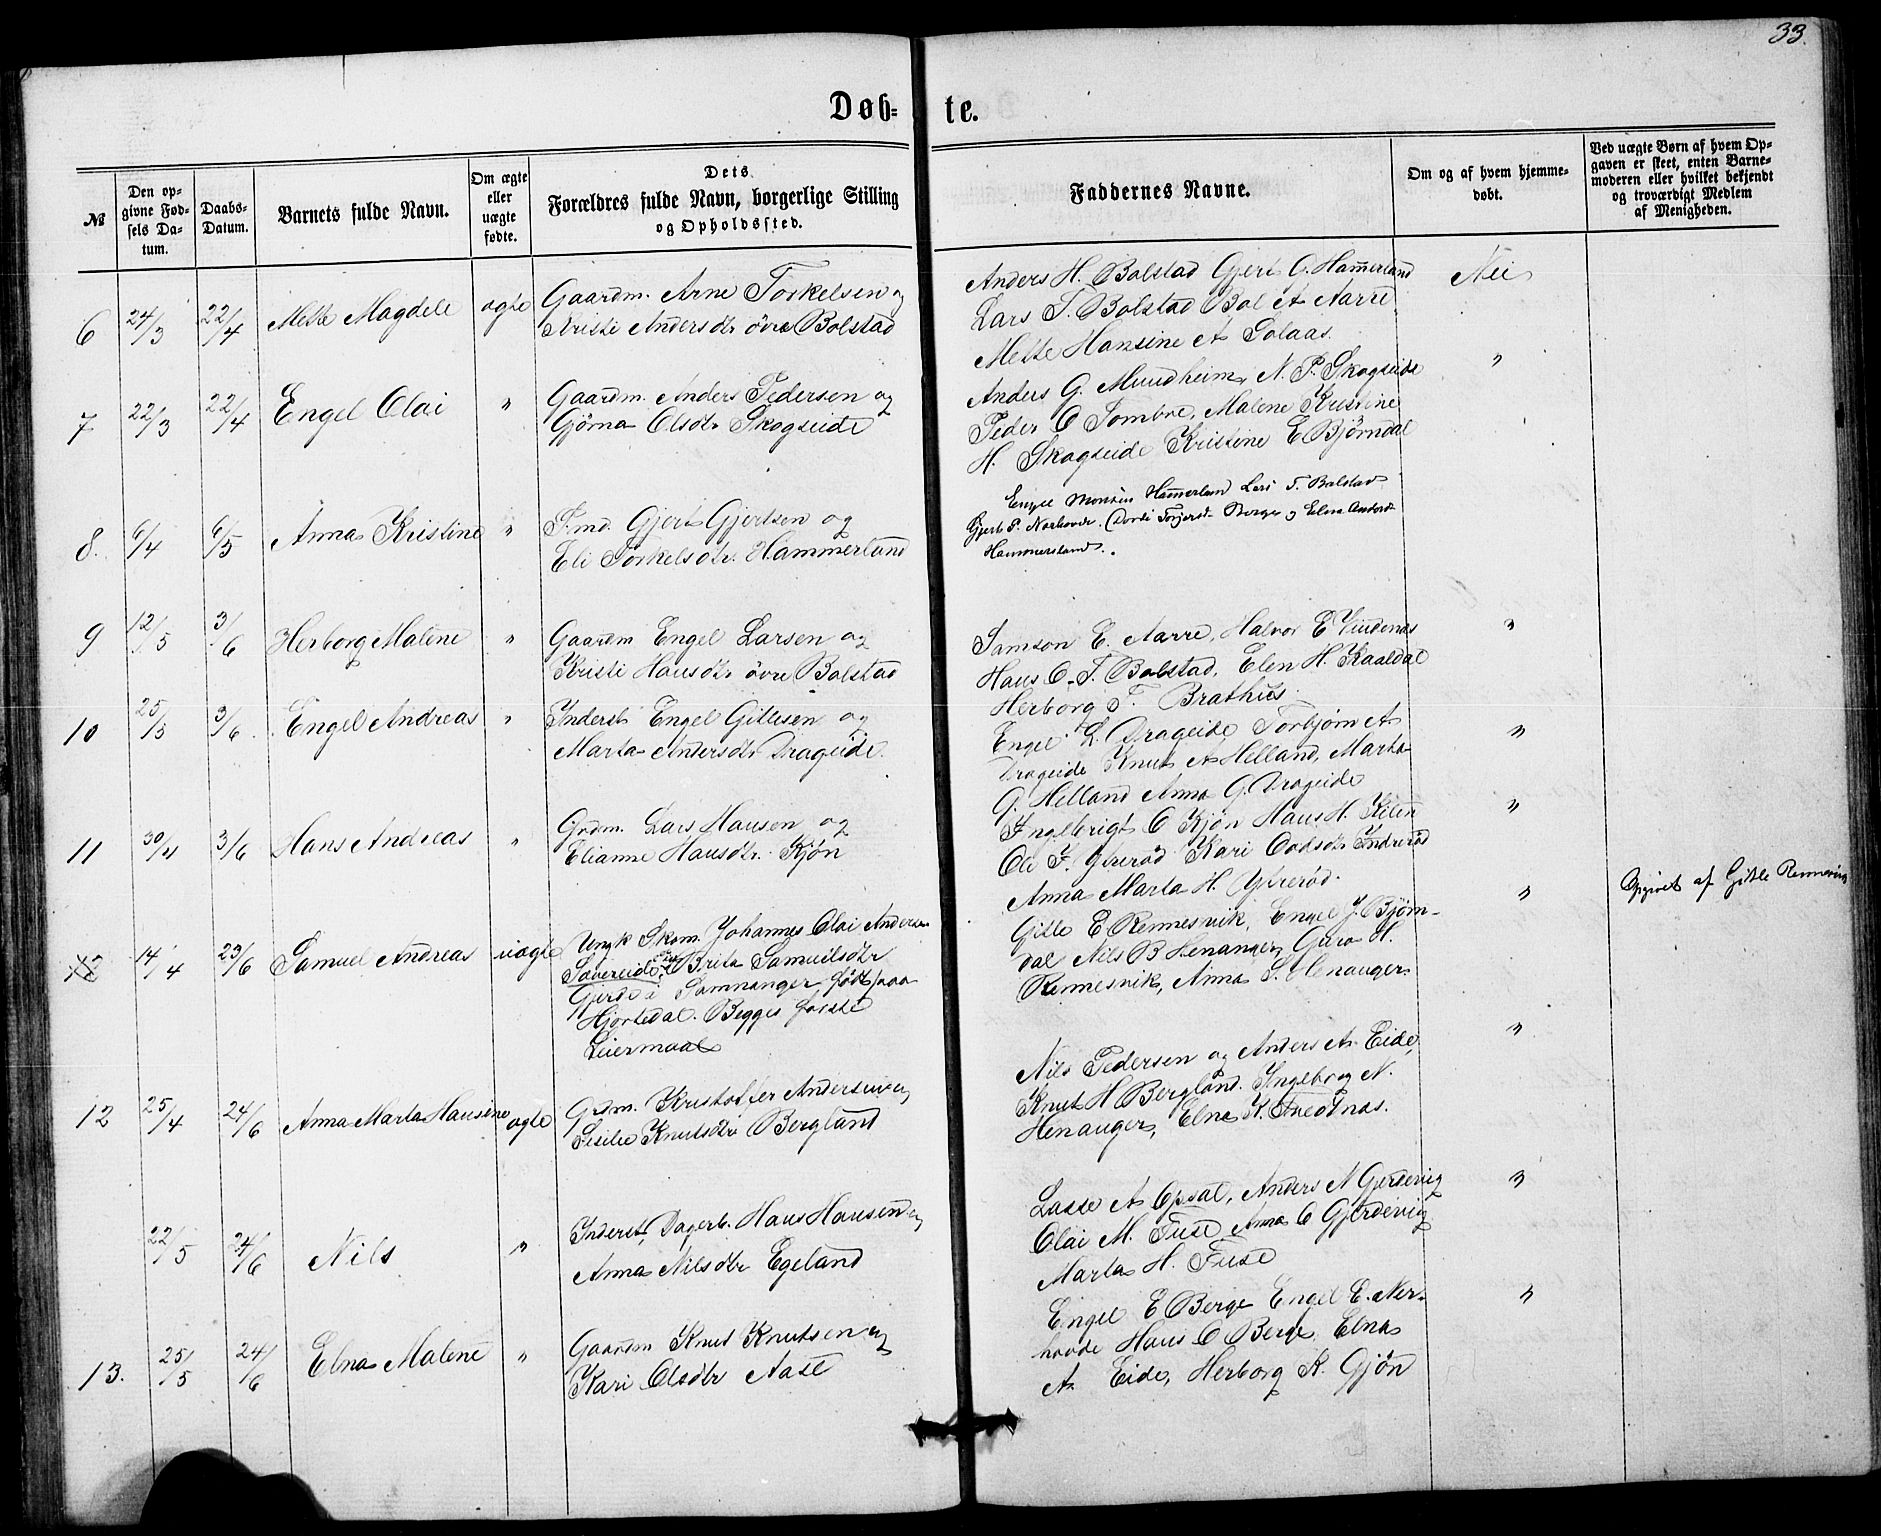 33.
Døb= te.
№
Den op-
givne Fød-
sels Da-
tum.
Daabs-
Datum.
Barnets fulde Navn.
Om ægte
eller
uægte
fødte.
Dets
Forældres fulde Navn, borgerlige Stilling
og Opholdssted.
Faddernes Navne.
Om og af hvem hjemme-
døbt.
Ved uægte Børn af hvem Op-
gaven er skeet, enten Barne-
moderen eller hvilket bekjendt
og troværdigt Medlem
af Menigheden.
6 24/3 22/4 Mette Magdele ægte
Gaardm. Arne Torkelsen og
Kristi Andersdtr øvre Bolstad
Anders H. Bolstad Gjert O. Hammerland
Lars T. Bolstad Bol A Aarre
Mette Hansine A Solaas.
Nei
7 22/3 22/4 Engel Olai "
Gaardm. Anders Pedersen og
Gjørna Olsdtr Skogseide
Anders G. Mundheim, N. P. Skogseide
Peder O Tombre, Malene Kristine
H. Skogseide Kristine E Bjørndal
"
8. 6/4 6/5 Anna Kristine "
Smd. Gjert Gjertsen og
Eli Torkelsdtr. Hammerland
Engel Monsen Hammerland Lars T. Bolstad
Gjert P. Norhovde. Dorte Torjersd. Berge og Elna Andersd
Hammersland.
9 12/5 3/6 Herborg Malene "
Gaardm Engel Larsen og
Kristi Hansdtr øvre Bolstad
Samson E. Aarre, Halvor E Vindenæs
Hans O. T. Bolstad, Elen H. Kaaldal
Herborg T. Brathus.
"
10 25/5 3/6. Engel Andreas "
Inderst Engel Gitlesen og
Marta Andersdtr Drageide.
Engel L. Drageide Torbjørn A
Drageide Knut A Helland, Marta
G. Helland Anna G. Drageide
"
11 30/4 3/6 Hans Andreas "
Grdm. Lars Hansen og
Elianne Hansdtr. Kjøn
Ingebrigt O Kjøn Hans H. Kilen
Ole I. Ytrerød Kari Oddsdtr Indrerød
Anna Marta H. Ytrerød.
"
12 14/4 23/6 Samuel Andreas uægte
Ungk Skom. Johannes Olai Andersen
Sævereide, Brita Samuelsdtr
Gjerde i Samnanger født paa
Hjortedal. Begges første
Leiermaal
Gitle E Rennesvik, Engel J. Bjørn-
dal Nils B Henanger, Guro H.
Rennesvik, Anna S. Henanger
"
Opgivet af Gitle Rennesvig
12 25/4 24/6 Anna Marta Hansine ægte
Grdm. Kristoffer Andersen og
Sisilie Knutsdtr Bergland
Nils Pedersen og Anders A. Eide,
Knut H Bergland. Ingeborg N.
Henanger, Elna K. Tuednæs.
"
22/5 24/6 Nils "
Inderst, Dagarb. Hans Hansen og
Anna Nilsdtr Egeland
Lasse A Opsal, Anders N Gjerdevig
Olai M. Fuse Anna O Gjerdevig
Marta H. Fuse
"
13. 25/5 24/6 Elna Malene "
Gaardm Knut Knutsen og
Kari Olsdtr Aase
Engel E Berge Engel E. Ner-
hovde Hans O Berge, Elna
A Eide, Herborg K. Gjøn
"